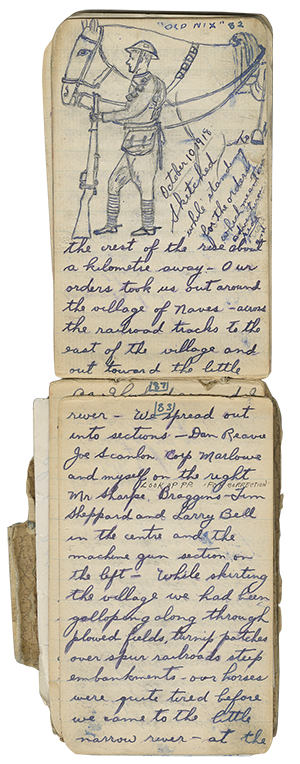 "OLD NIX" 82
October 10, 1918
Sketched
while standing to
for the order
the crest of the rise about
a kilometre away - Our
orders took us out around
the village of Naves - across
the railroad tracks to the
east of the village and
out toward the little
83
river - We spread out
into sections - Dan Reave
Joe Scanlon, Cop Marlowe
and myself on the right
Mr Sharpe. Draggins - Jim
Sheppard and Larry Bell
in the centre and the
machine gun section on
the left - While skirting
the village we had been
galloping along through
plowed fields, turnip patches
over spur railroads steep
embankments - our horses
were quite tired before
we came to the little
narrow river - at the